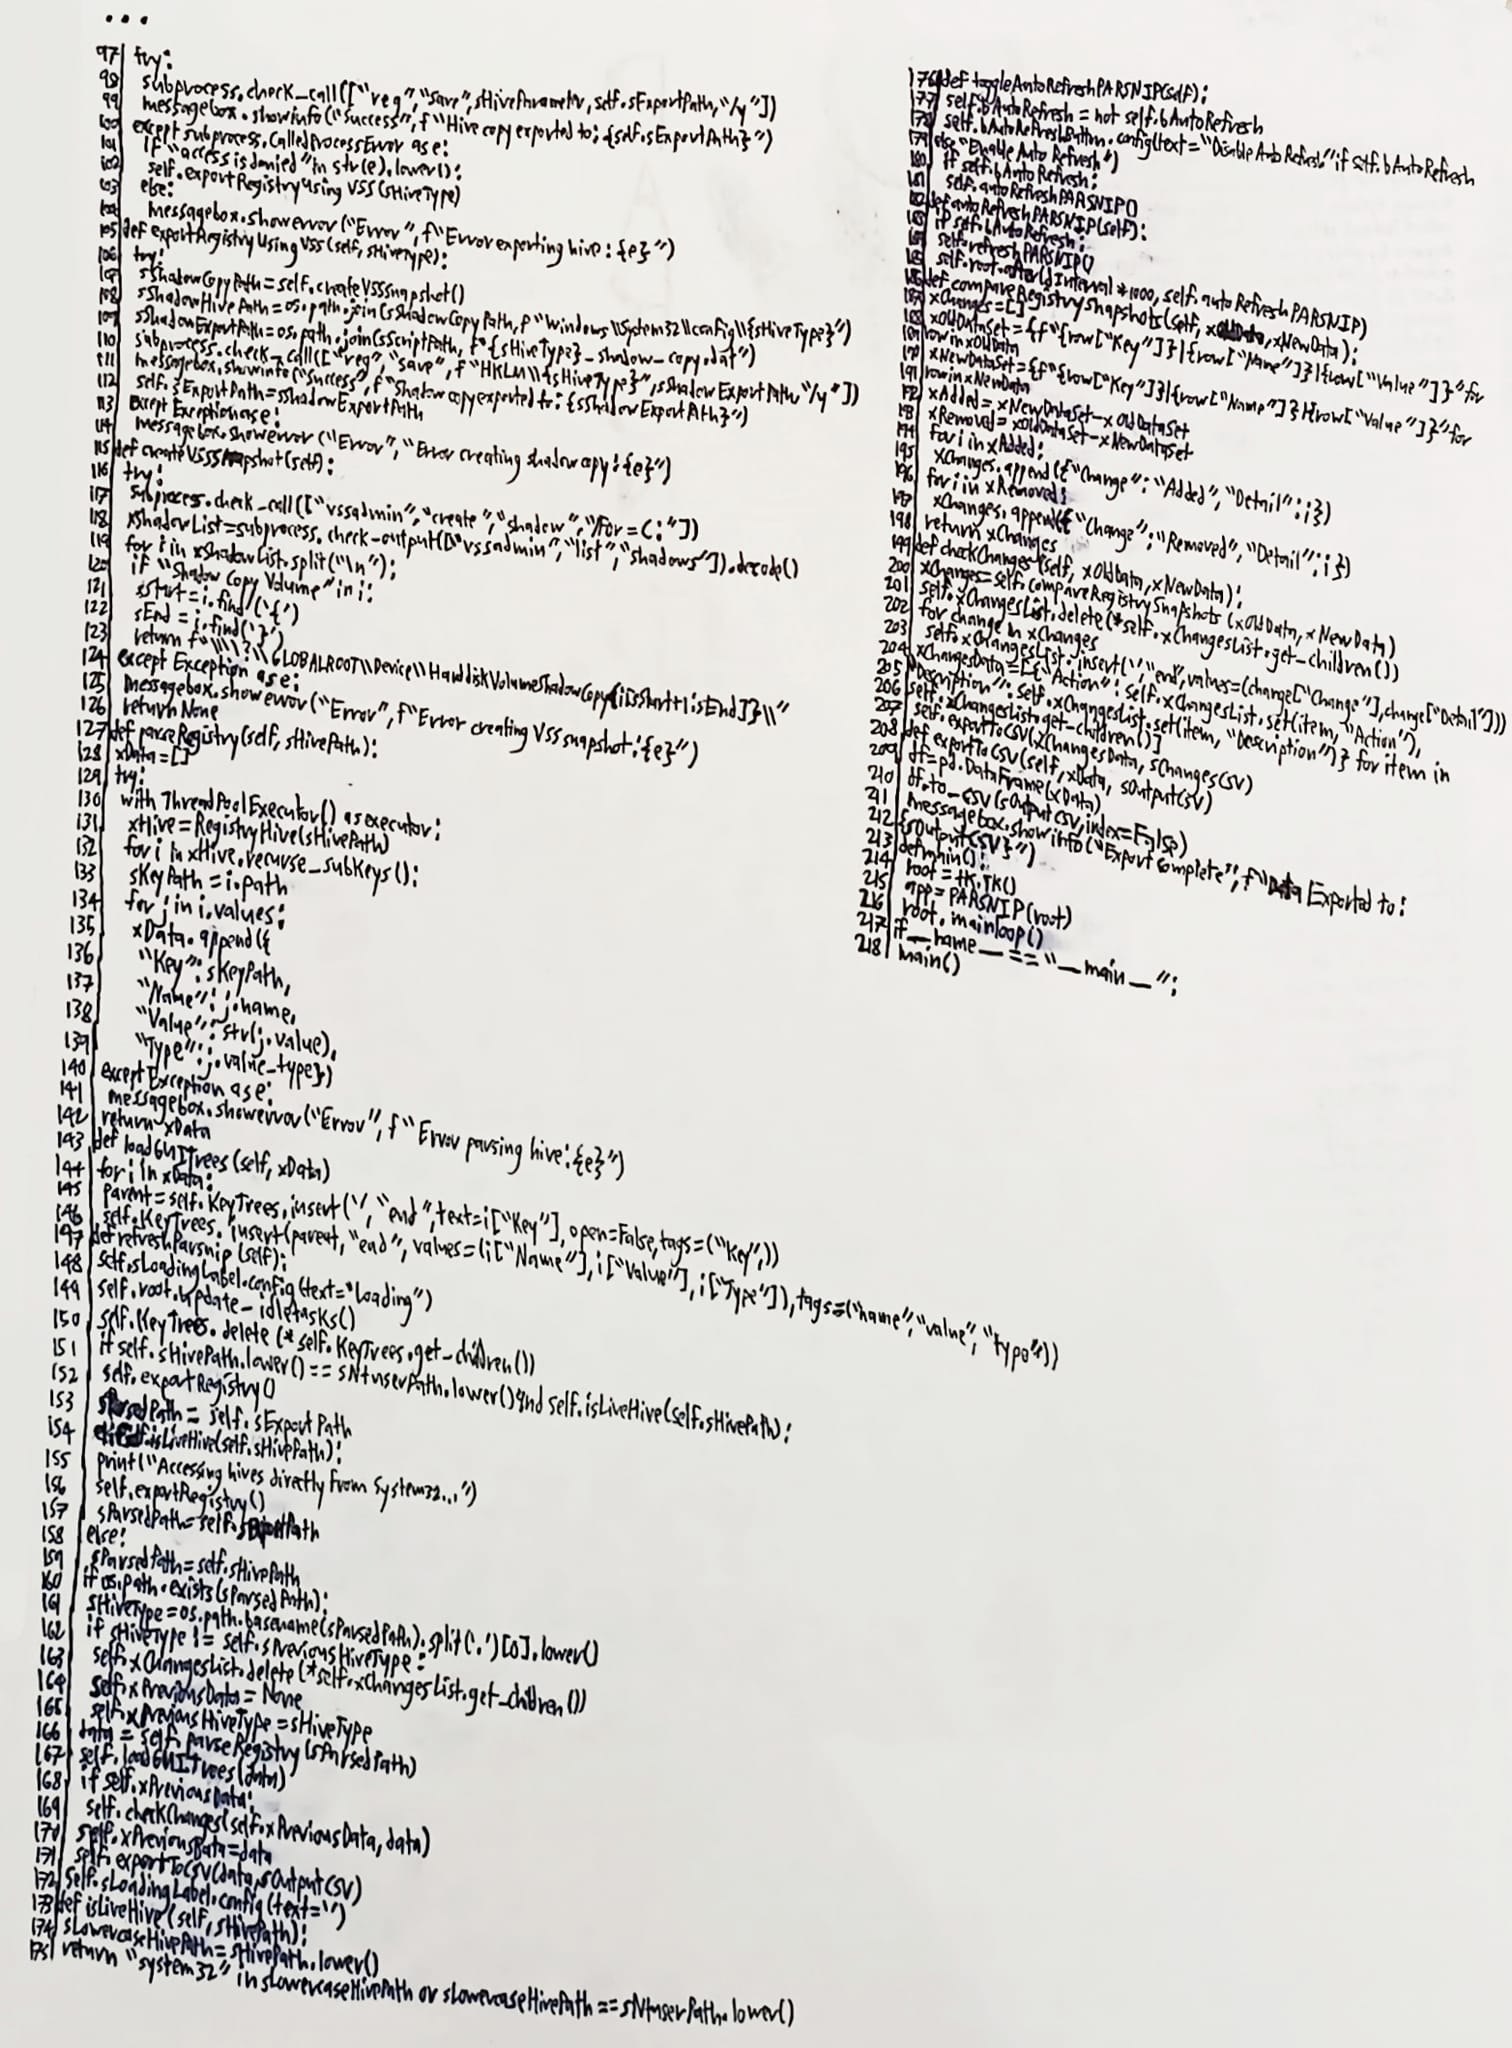 ...
97 try:
98 subprocess.check_call(["reg","save",sHiveParameter,self.sExportPath,"/y"])
99 messagebox.showinfo("Success",f"Hive copy exported to: {self.sExportPath}")
100 except subprocess.CalledProcessError as e:
101 if "access is denied" in str(e).lower():
102 self.exportRegistryUsingVSS(sHiveType)
103 else:
104 messagebox.showerror("Error",f"Error exporting hive: {e}")
105 def exportRegistryUsingVSS(self,sHiveType):
106 try:
107 sShadowCopyPath=self.createVSSSnapshot()
108 sShadowHivePath=os.path.join(sShadowCopyPath,f"Windows\\System32\\config\\{sHiveType}")
109 sShadowExportPath=os.path.join(sScriptPath,f"{sHiveType}_shadow_copy.dat")
110 subprocess.check_call(["reg","save",f"HKLM\\{sHiveType}",sShadowExportPath,"/y"])
111 messagebox.showinfo("Success",f"Shadow copy exported to: {sShadowExportPath}")
112 self.sExportPath=sShadowExportPath
113 except Exception as e:
114 messagebox.showerror("Error","Error creating shadow copy: {e}")
115 def createVSSSnapshot(self):
116 try:
117 subprocess.check_call(["vssadmin","create","shadow","/for=C:"])
118 xShadowList=subprocess.check_output(["vssadmin","list","shadows"]).decode()
119 for i in xShadowList.split("\n"):
120 if "Shadow Copy Volume" in i:
121 sStart=i.find('{')
122 sEnd=i.find('}')
123 return f"\\\\?\\GLOBALROOT\\Device\\HarddiskVolumeShadowCopy{i[sStart+1:sEnd]}\\"
124 except Exception as e:
125 messagebox.showerror("Error",f"Error creating VSS snapshot: {e}")
126 return None
127 def parseRegistry(self,sHivePath):
128 xData=[]
129 try:
130 with ThreadPoolExecutor() as executor:
131 xHive=RegistryHive(sHivePath)
132 for i in xHive.recurse_subkeys():
133 sKeyPath=i.path
134 for j in i.values:
135 xData.append({
136 "Key": sKeyPath,
137 "Name": j.name,
138 "Value": str(j.value),
139 "Type": j.value_type})
140 except Exception as e:
141 messagebox.showerror("Error",f"Error parsing hive: {e}")
142 return xData
143 def loadGUITrees(self,xData)
144 for i in xData:
145 parent=self.KeyTrees.insert('',"end",text=i["Key"],open=False,tags=("Key",))
146 self.KeyTrees.insert(parent,"end",values=(i["Name"],i["Value"],i["Type"]),tags=("name","value","type"))
147 def refreshParsnip(self):
148 self.sLoadingLabel.config(text="loading")
149 self.root.update_idletasks()
150 self.KeyTrees.delete(*self.KeyTrees.get_children())
151 if self.sHivePath.lower()==sNtuserPath.lower() and self.isLiveHive(self.sHivePath):
152 self.exportRegistry()
153 sParsedPath=self.sExportPath
154 elif self.isLiveHive(self.sHivePath):
155 print("Accessing hives directly from System32...")
156 self.exportRegistry()
157 sParsedPath=self.sExportPath
158 else:
159 sParsedPath=self.sHivePath
160 if os.path.exists(sParsedPath):
161 sHiveType=os.path.basename(sParsedPath).split('.')[0].lower()
162 if sHiveType != self.sPreviousHiveType:
163 self.xChangesList.delete(*self.xChangesList.get_children())
164 self.xPreviousData=None
165 self.xPreviousHiveType=sHiveType
166 data=self.parseRegistry(sParsedPath)
167 self.loadGUITrees(data)
168 if self.xPreviousData:
169 self.checkChanges(self.xPreviousData,data)
170 self.xPreviousData=data
171 self.exportToCSV(data,sOutputCSV)
172 self.sLoadingLabel.config(text='')
173 def isLiveHive(self,sHivePath):
174 sLowercaseHivePath=sHivePath.lower()
175 return "system32" in sLowercaseHivePath or sLowercaseHivePath==sNtuserPath.lower()
176 def toggleAutoRefreshPARSNIP(self):
177 self.bAutoRefresh = not self.bAutoRefresh
178 self.bAutoRefreshButton.config(text="Disable Auto Refresh" if self.bAutoRefresh
179 else "Enable Auto Refresh")
180 if self.bAutoRefresh:
181 self.autoRefreshPARSNIP()
182 def autoRefreshPARSNIP(self):
183 if self.bAutoRefresh:
184 self.refreshPARSNIP()
185 self.root.after(dInterval*1000,self.autoRefreshPARSNIP)
186 def compareRegistrySnapshots(self,xOldData,xNewData):
187 xChanges=[]
188 xOldDataSet={f"{row["Key"]}|{row["Name"]}|{row["Value"]}" for
189 row in xOldData
190 xNewDataSet={f"{row["Key"]}|{row["Name"]}|{row["Value"]}" for
191 row in xNewData
192 xAdded=xNewDataSet-xOldDataSet
193 xRemoved=xOldDataSet-xNewDataSet
194 for i in xAdded:
195 xChanges.append({"Change":"Added","Detail":i})
196 for i in xRemoved:
197 xChanges.append({"Change":"Removed","Detail":i})
198 return xChanges
199 def checkChanges(self,xOldData,xNewData):
200 xChanges=self.compareRegistrySnapshots(xOldData,xNewData)
201 self.xChangesList.delete(*self.xChangesList.get_children())
202 for change in xChanges
203 self.xChangesList.insert('',"end",values=(change["Change"],change["Detail"]))
204 xChangesData=[{"Action": self.xChangesList.set(item,"Action"),
205 "Description": self.xChangesList.set(item,"Description")} for item in
206 self.xChangesList.get_children()]
207 self.exportToCSV(xChangesData,sChangesCSV)
208 def exportToCSV(self,xData,sOutputCSV)
209 df=pd.DataFrame(xData)
210 df.to_csv(sOutputCSV,index=False)
211 messagebox.showinfo("Export Complete",f"Data Exported to:
212 {sOutputCSV}")
213 def main():
214 root=tk.TK()
215 app=PARSNIP(root)
216 root.mainloop()
217 if __name__ == "__main__":
218 main()